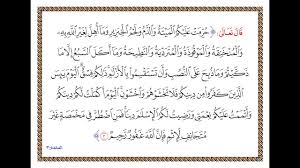 قَالَ تَعَالَى: ﴿ حُرِّمَتْ عَلَيْكُمُ ٱلْمَيْتَةُ وَٱلدَّمُ وَلَحْمُ ٱلْخِنزِيرِ وَمَآ أُهِلَّ لِغَيْرِ ٱللَّهِ بِهِۦ
وَٱلْمُنْخَنِقَةُ وَٱلْمَوْقُوذَةُ وَٱلْمُتَرَدِّيَةُ وَٱلنَّطِيحَةُ وَمَآ أَكَلَ ٱلسَّبُعُ إِلَّا مَا
ذَكَّيْتُمْ وَمَا ذُبِحَ عَلَى ٱلنُّصُبِ وَأَن تَسْتَقْسِمُوا۟ بِٱلْأَزْلَٰمِ ذَٰلِكُمْ فِسْقٌ ٱلْيَوْمَ يَئِسَ
ٱلَّذِينَ كَفَرُوا۟ مِن دِينِكُمْ فَلَا تَخْشَوْهُمْ وَٱخْشَوْنِ ٱلْيَوْمَ أَكْمَلْتُ لَكُمْ دِينَكُمْ
وَأَتْمَمْتُ عَلَيْكُمْ نِعْمَتِى وَرَضِيتُ لَكُمُ ٱلْإِسْلَٰمَ دِينًا فَمَنِ ٱضْطُرَّ فِى مَخْمَصَةٍ غَيْرَ
مُتَجَانِفٍ لِّإِثْمٍ فَإِنَّ ٱللَّهَ غَفُورٌ رَّحِيمٌ ٣ ﴾ المائدة: ٣